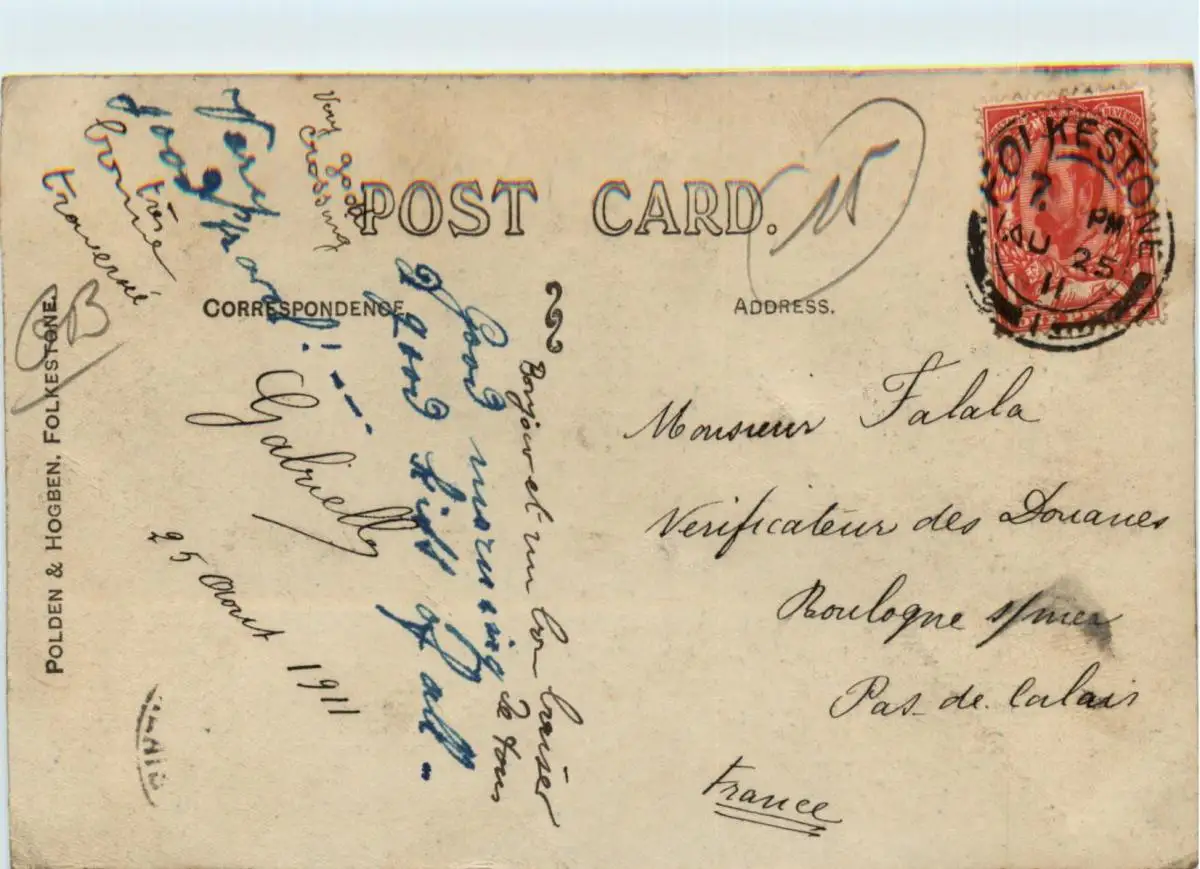 POST CARD.
CORRESPONDENCE.
ADDRESS.
POLDEN & HOGBEN. FOLKESTONE.
FOLKESTONE
7. PM
AU 25
11
1
REVENUE
Monsieur Falala
Verificateur des Douanes
Boulogne s/mer
Pas-de-Calais
France
Bonjour et un bon baiser
de tous
Good morning
good kiss of all.
Very
good
Very good
Crossing
très
bonne
traversée
Gabrielle
25 Aout 1911